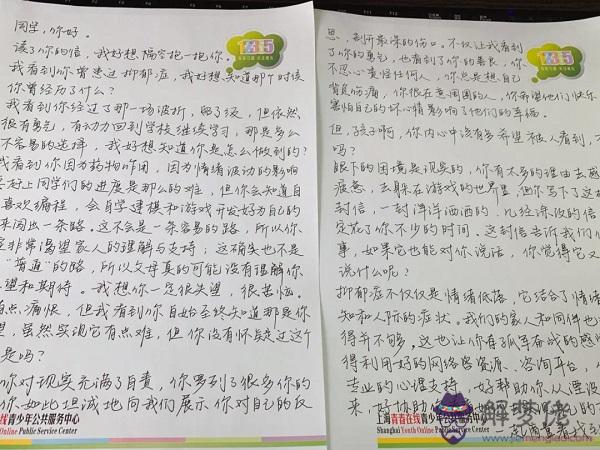 同学,你好。
读了你的信,我好想隔空抱一抱你。
我看到你曾患过抑郁症,我好想知道那个时候
你曾经历了什么?
我看到你经过了那一场波折,留了级,但依然
很有勇气,有动力回到学校继续学习,那是多么
不容易的选择,我好想知道你是怎么做到的?
我看到你因为药物作用,因为情绪波动的影响
上同学们的进度是那么的难,但你会知道自
喜欢编程,会自学建模和游戏开发好为自己的
来闯出一条路。这不会是一条容易的路,所以你
非常渴望家人的理解与支持;这确实也不是
"普通"的路,所以父母真的可能没有理解你
望和期待。我想你一定很失望,很苦恼。
有点痛恨,但我看到你自始至终知道那是你
望,虽然实现它有点难,但你没有怀疑过这个
是吗?
你对现实充满了自责,你罗列了很多你的
你如此坦诚地向我们展示你对自己的反
线青少年公共服务中心
Online Public Service Center
12355
思,剖开最深的伤口。不仅让我看到
了你的勇气,也看到了你的善良,你
不忍心责怪任何人,你总是想自己
背负伤痛,你很在意周围的人,你希望他们快乐
害怕自己的坏心情影响了他们的幸福。
但,孩子啊,你内心中该有多希望被人看到,
吗?
眼下的困境是现实的,你有太多的理由去感
疲惫,去躲在游戏的世界里,但你写下了这
封信,一封洋洋洒洒的、几经深改的信
定花了你不少的时间。这封信告诉我们
事,如果它也能对你说话,你觉得它又
说什么呢?
抑郁症不仅仅是情绪低落,它结合了情绪
知和人际的症状。我们的家人和同伴也
得并不够。这也让你有了孤军奋战的感
得利用好的网络资源、咨询平台,
专业的心理支持,好帮助你从湮没
来,好协助你
12355
上海青春在线青少年公共服务中心
Shanghai Youth Online Public Service Center
解梦佬
jiemenglao.com